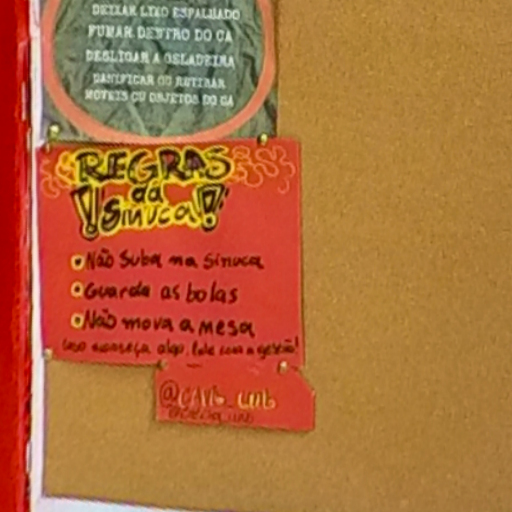 DEIXAR LIXO ESPALHADO
FUMAR DENTRO DO CA
DESLIGAR A GELADEIRA
DANIFICAR OU RETIRAR
MÓVEIS OU OBJETOS DO CA
REGRAS
da
!!Sinuca!!
Não Suba na Sinuca
Guarde as bolas
Não mova a mesa
Caso aconteça algo, fale com a gestão!